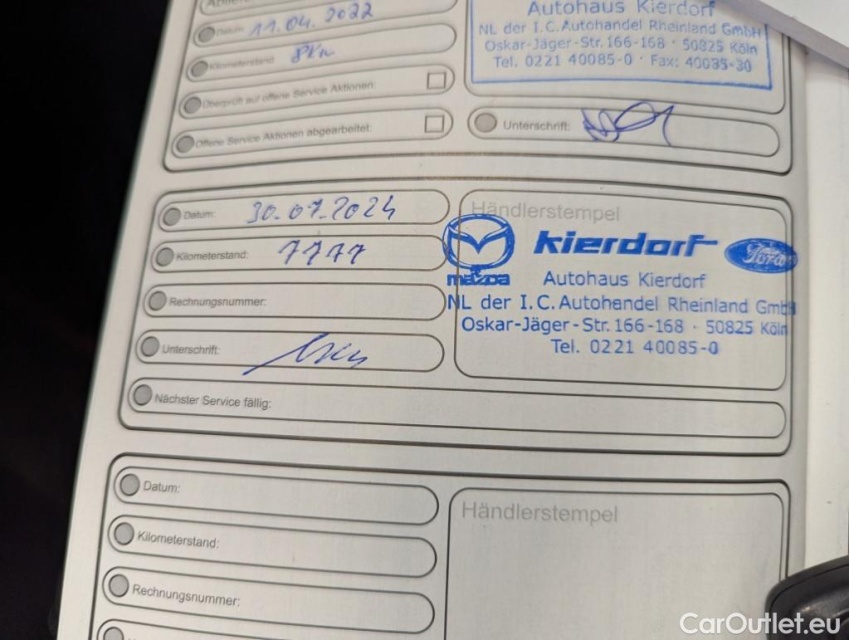 Datum: 11.04.2022
Kilometerstand: 8km
Überprüft auf offene Service Aktionen:
Offene Service Aktionen abgearbeitet:
Autohaus Kierdorf
NL der I.C. Autohandel Rheinland GmbH
Oskar-Jäger-Str. 166-168 · 50825 Köln
Tel. 0221 40085-0 · Fax: 40085-30
Unterschrift:
Datum: 30.07.2024
Kilometerstand: 7777
Rechnungsnummer:
Unterschrift:
Nächster Service fällig:
Händlerstempel
mazda kierdorf Ford
Autohaus Kierdorf
NL der I.C. Autohandel Rheinland GmbH
Oskar-Jäger-Str. 166-168 · 50825 Köln
Tel. 0221 40085-0
Datum:
Kilometerstand:
Rechnungsnummer:
Händlerstempel
CarOutlet.eu